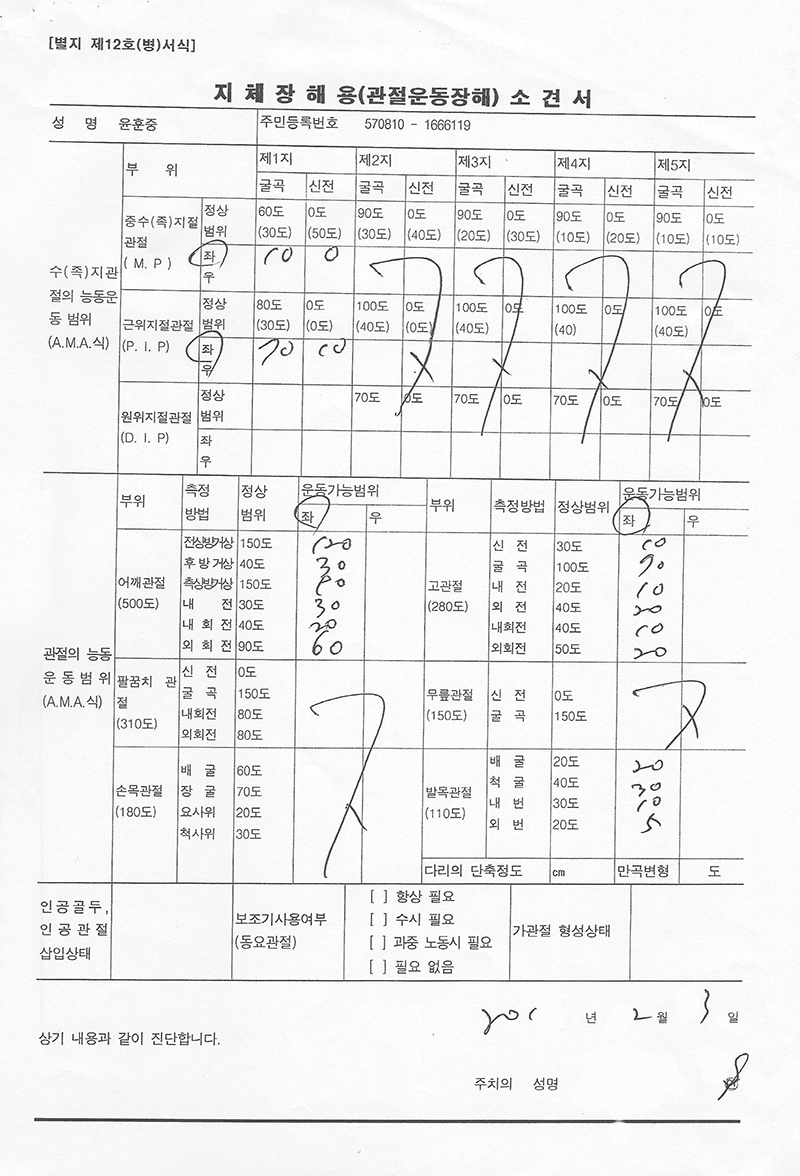 [별지 제12호(병)서식]
지 체 장 해 용(관절운동장해) 소 견 서
성 명 윤훈중 주민등록번호 570810 - 1666119
부 위 제1지 제2지 제3지 제4지 제5지
굴곡 신전 굴곡 신전 굴곡 신전 굴곡 신전 굴곡 신전
수(족)지관절의 능동운동 범위 (A.M.A.식)
중수(족)지절관절 (M. P)
정상범위 60도 (30도) 0도 (50도) 90도 (30도) 0도 (40도) 90도 (20도) 0도 (30도) 90도 (10도) 0도 (20도) 90도 (10도) 0도 (10도)
좌 10 0
우
근위지절관절 (P. I. P)
정상범위 80도 (30도) 0도 (0도) 100도 (40도) 0도 (0도) 100도 (40도) 0도 100도 (40) 0도 100도 (40도) 0도
좌 70 10
우
원위지절관절 (D. I. P)
정상범위 70도 0도 70도 0도 70도 0도 70도 0도
좌
우
관절의 능동운동범위 (A.M.A.식)
부위 측정방법 정상범위 운동가능범위 좌 우
어깨관절 (500도)
전상방거상 150도 120
후방거상 40도 30
측상방거상 150도
내 전 30도 30
내 회 전 40도 20
외 회 전 90도 60
팔꿈치 관절 (310도)
신 전 0도
굴 곡 150도
내회전 80도
외회전 80도
손목관절 (180도)
배 굴 60도
장 굴 70도
요사위 20도
척사위 30도
부위 측정방법 정상범위 운동가능범위 좌 우
고관절 (280도)
신 전 30도 10
굴 곡 100도 90
내 전 20도 10
외 전 40도 20
내회전 40도 10
외회전 50도 20
무릎관절 (150도)
신 전 0도
굴 곡 150도
발목관절 (110도)
배 굴 20도 20
척 굴 40도 30
내 번 30도 10
외 번 20도 5
다리의 단축정도 cm 만곡변형 도
인공골두, 인공관절 삽입상태
보조기사용여부 (동요관절)
[ ] 항상 필요
[ ] 수시 필요
[ ] 과중 노동시 필요
[ ] 필요 없음
가관절 형성상태
201 년 2 월 3 일
상기 내용과 같이 진단합니다.
주치의 성명